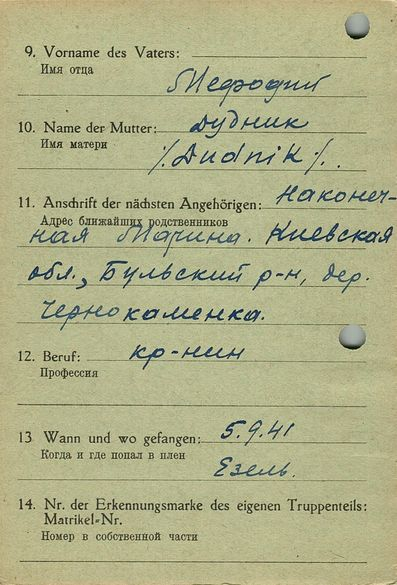 9. Vorname des Vaters:
Имя отца
Мефодий
10. Name der Mutter: Дудник
Имя матери
/Dudnik/.
11. Anschrift der nächsten Angehörigen: Наконеч-
Адрес ближайших родственников
ная Марина. Киевская
обл., Бульский р-н, дер.
Чернокаменка.
12. Beruf: кр-нин
Профессия
13 Wann und wo gefangen: 5.9.41
Когда и где попал в плен
Езель.
14. Nr. der Erkennungsmarke des eigenen Truppenteils:
Matrikel-Nr.
Номер в собственной части